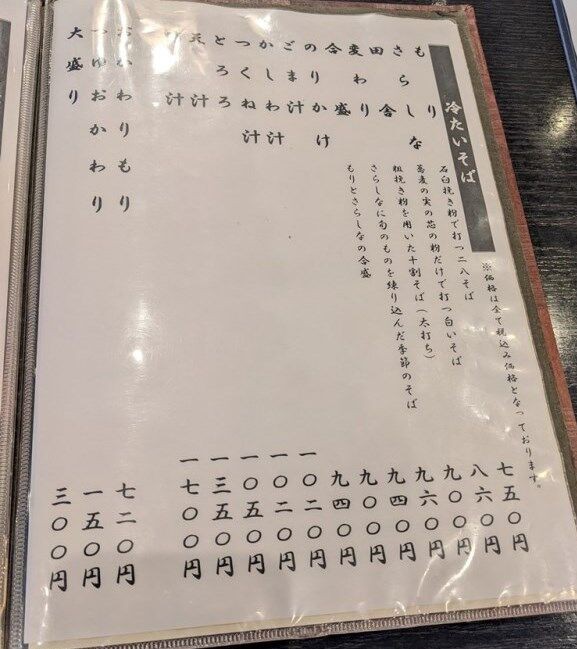 ※価格は全て税込み価格となっております。
冷たいそば
もり 石臼挽き粉で打つ二八そば 七五〇円
さらしな 蕎麦の実の芯の粉だけで打つ白いそば 八六〇円
田舎 粗挽き粉を用いた十割そば(太打ち) 九〇〇円
変わり さらしなに旬のものを練り込んだ季節のそば 九六〇円
合盛 もりとさらしなの合盛 九四〇円
のりかけ 九〇〇円
ごま汁 九四〇円
かしわ汁 一〇二〇円
つくね汁 一〇二〇円
とろろ 一〇五〇円
天汁 一三五〇円
汁 一七〇〇円
おかわりもり 七二〇円
つゆおかわり 一五〇円
大盛り 三〇〇円